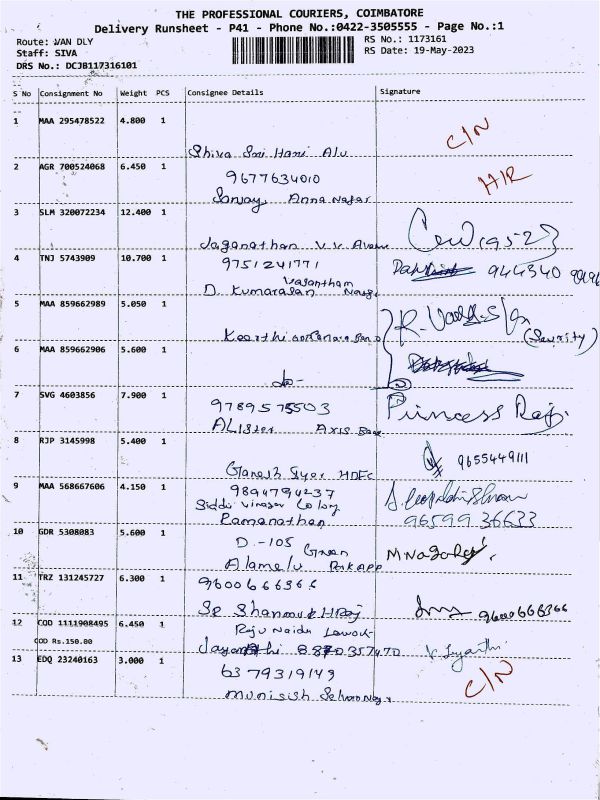 THE PROFESSIONAL COURIERS, COIMBATORE
Delivery Runsheet - P41 - Phone No.:0422-3505555 - Page No.:1
Route: VAN DLY
Staff: SIVA
DRS No.: DCJB117316101
RS No.: 1173161
RS Date: 19-May-2023
S No Consignment No Weight PCS Consignee Details Signature
1 MAA 295478522 4.800 1 C/N
Shiva Sri Hari Alu
2 AGR 700524068 6.450 1 H/R
9677634010
Sanjay Anna Nagar
3 SLM 320072234 12.400 1
Jaganathan V.V.
4 TNJ 5743909 10.700 1
9751241771
Vasantham
D. Kumarasan
5 MAA 859662989 5.050 1
(Security)
6 MAA 859662906 5.600 1
-do-
7 SVG 4603856 7.900 1 Princess Raji
9789575503
Axis Bank
8 RJP 3145998 5.400 1 9655449111
Ganesh HDFC
9 MAA 568667606 4.150 1
9894794237
Colony 96599 36633
Ramanathan
10 GDR 5308083 5.600 1
D.-105 Green
Alamelu
11 TRZ 131245727 6.300 1
9600666366
9600666366
12 COD 1111908495 6.450 1
Raju Naidu
COD Rs.150.00
Jayanthi 8870357470
13 EDQ 23240163 3.000 1 C/N
6379319149